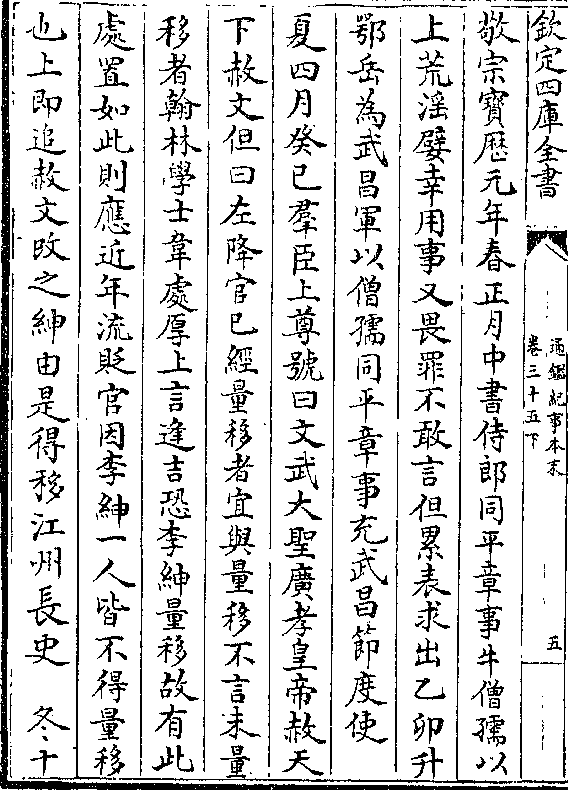 欽定四庫全書
通鑑紀事本末
卷三十五下
五
敬宗寶厯元年春正月中書侍郎同平章事牛僧孺以
上荒淫嬖幸用事又畏罪不敢言但累表求出乙卯升
鄂岳為武昌軍以僧孺同平章事充武昌節度使
夏四月癸巳羣臣上尊號曰文武大聖廣孝皇帝赦天
下赦文但曰左降官已經量移者宜與量移不言未量
移者翰林學士韋處厚上言逢吉恐李紳量移故有此
處置如此則應近年流貶官因李紳一人皆不得量移
也上即追赦文改之紳由是得移江州長史　冬十